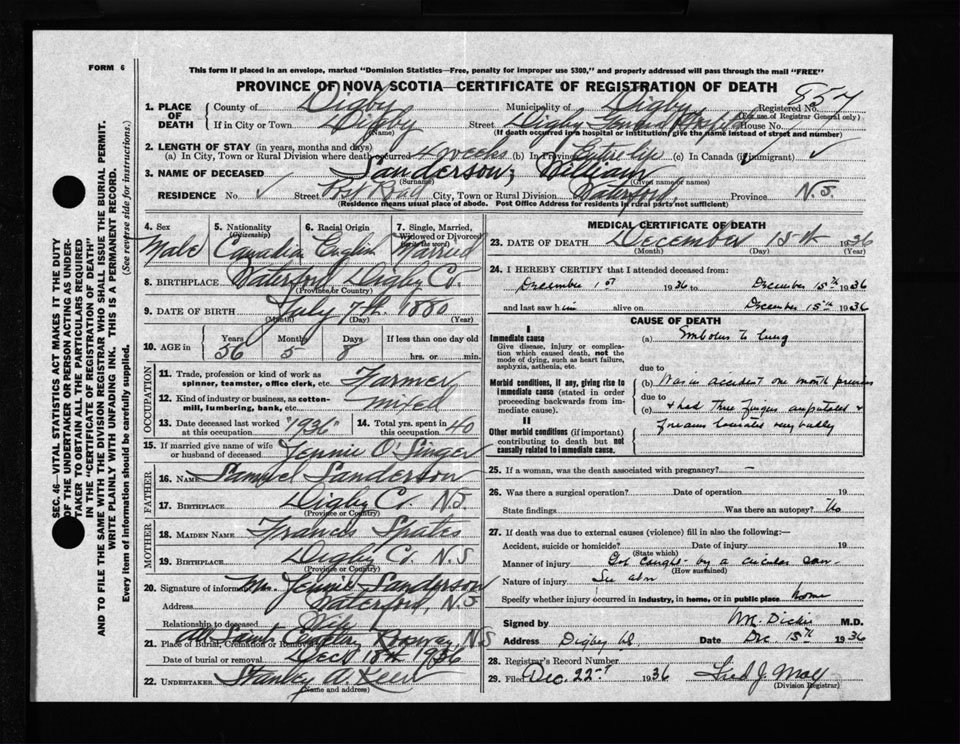 FORM 6
This form if placed in an envelope, marked "Dominion Statistics—Free, penalty for improper use $300," and properly addressed will pass through the mail "FREE"
PROVINCE OF NOVA SCOTIA—CERTIFICATE OF REGISTRATION OF DEATH
857
1. PLACE OF DEATH
County of Digby Municipality of Digby Registered No.
(For use of Registrar General only)
If in City or Town Digby Street Digby General Hospital House No.
(Name) (If death occurred in a hospital or institution, give the name instead of street and number)
2. LENGTH OF STAY (in years, months and days)
(a) In City, Town or Rural Division where death occurred 4 weeks (b) In Province Entire life (c) In Canada (if immigrant) ✓
3. NAME OF DECEASED Sanderson, William
(Surname) (Given name or names)
RESIDENCE No. ✓ Street Post Road City, Town or Rural Division Waterford, Province N.S.
(Residence means usual place of abode. Post Office Address for residents in rural parts not sufficient)
4. Sex Male
5. Nationality (Citizenship) Canadian
6. Racial Origin English
7. Single, Married, Widowed or Divorced (write the word) Married
8. BIRTHPLACE Waterford Digby Co.
(Province or Country)
9. DATE OF BIRTH July 7th. 1880
(Month) (Day) (Year)
10. AGE in Years 56 Months 5 Days 8 If less than one day old hrs. or min.
OCCUPATION
11. Trade, profession or kind of work as spinner, teamster, office clerk, etc. Farmer
12. Kind of industry or business, as cotton-mill, lumbering, bank, etc. mixed
13. Date deceased last worked at this occupation "1936" 14. Total yrs. spent in this occupation 40
15. If married give name of wife or husband of deceased Jennie O'Singer
FATHER
16. NAME Samuel Sanderson
17. BIRTHPLACE Digby Co. N.S.
(Province or Country)
MOTHER
18. MAIDEN NAME Francis Spates
19. BIRTHPLACE Digby Co. N.S
(Province or Country)
20. Signature of informant Mrs. Jennie Sanderson
Address Waterford, N.S
Relationship to deceased Wife
21. Place of Burial, Cremation or Removal All Saints Cemetery Rossway N.S
Date of burial or removal Dec 18th 1936
22. UNDERTAKER Stanley
(Name and address)
MEDICAL CERTIFICATE OF DEATH
23. DATE OF DEATH December 15th 1936
(Month) (Day) (Year)
24. I HEREBY CERTIFY that I attended deceased from:
December 1st 1936 to December 15th 1936
and last saw him alive on December 15th 1936
CAUSE OF DEATH
I
Immediate cause
Give disease, injury or complication which caused death, not the mode of dying, such as heart failure, asphyxia, asthenia, etc.
(a) Embolus to lung
due to
Morbid conditions, if any, giving rise to immediate cause (stated in order proceeding backwards from immediate cause).
(b) Was in accident one month previous
due to
(c) & had three fingers amputated &
II
Other morbid conditions (if important) contributing to death but not causally related to immediate cause.
very badly
25. If a woman, was the death associated with pregnancy? —
26. Was there a surgical operation? Date of operation 19
State findings Was there an autopsy? No
27. If death was due to external causes (violence) fill in also the following:—
Accident, suicide or homicide? Date of injury 19
(State which)
Manner of injury Got caught by a circular saw
(How sustained)
Nature of injury See above
Specify whether injury occurred in industry, in home, or in public place home
Signed by M.D.
Address Digby NS Date Dec. 15th 1936
28. Registrar's Record Number
29. Filed Dec. 22nd 1936 Fred J. May
(Division Registrar)
SEC. 46—VITAL STATISTICS ACT MAKES IT THE DUTY
OF THE UNDERTAKER OR PERSON ACTING AS UNDERTAKER
TO OBTAIN ALL THE PARTICULARS REQUIRED
IN THE "CERTIFICATE OF REGISTRATION OF DEATH"
AND TO FILE THE SAME WITH THE DIVISION REGISTRAR WHO SHALL ISSUE THE BURIAL PERMIT.
WRITE PLAINLY WITH UNFADING INK. THIS IS A PERMANENT RECORD.
Every item of information should be carefully supplied. (See reverse side for instructions.)